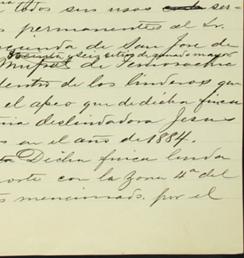 todos sus usos ser-
s permanentes al Sr.
de San José de
de Temosachic
dentro de los linderos que
el apeo que de dicha finca
ñia deslindadora Jesus
s en el año de 1884.
Dicha finca linda
orte con la Zona 4ª del
s mencionado. por el